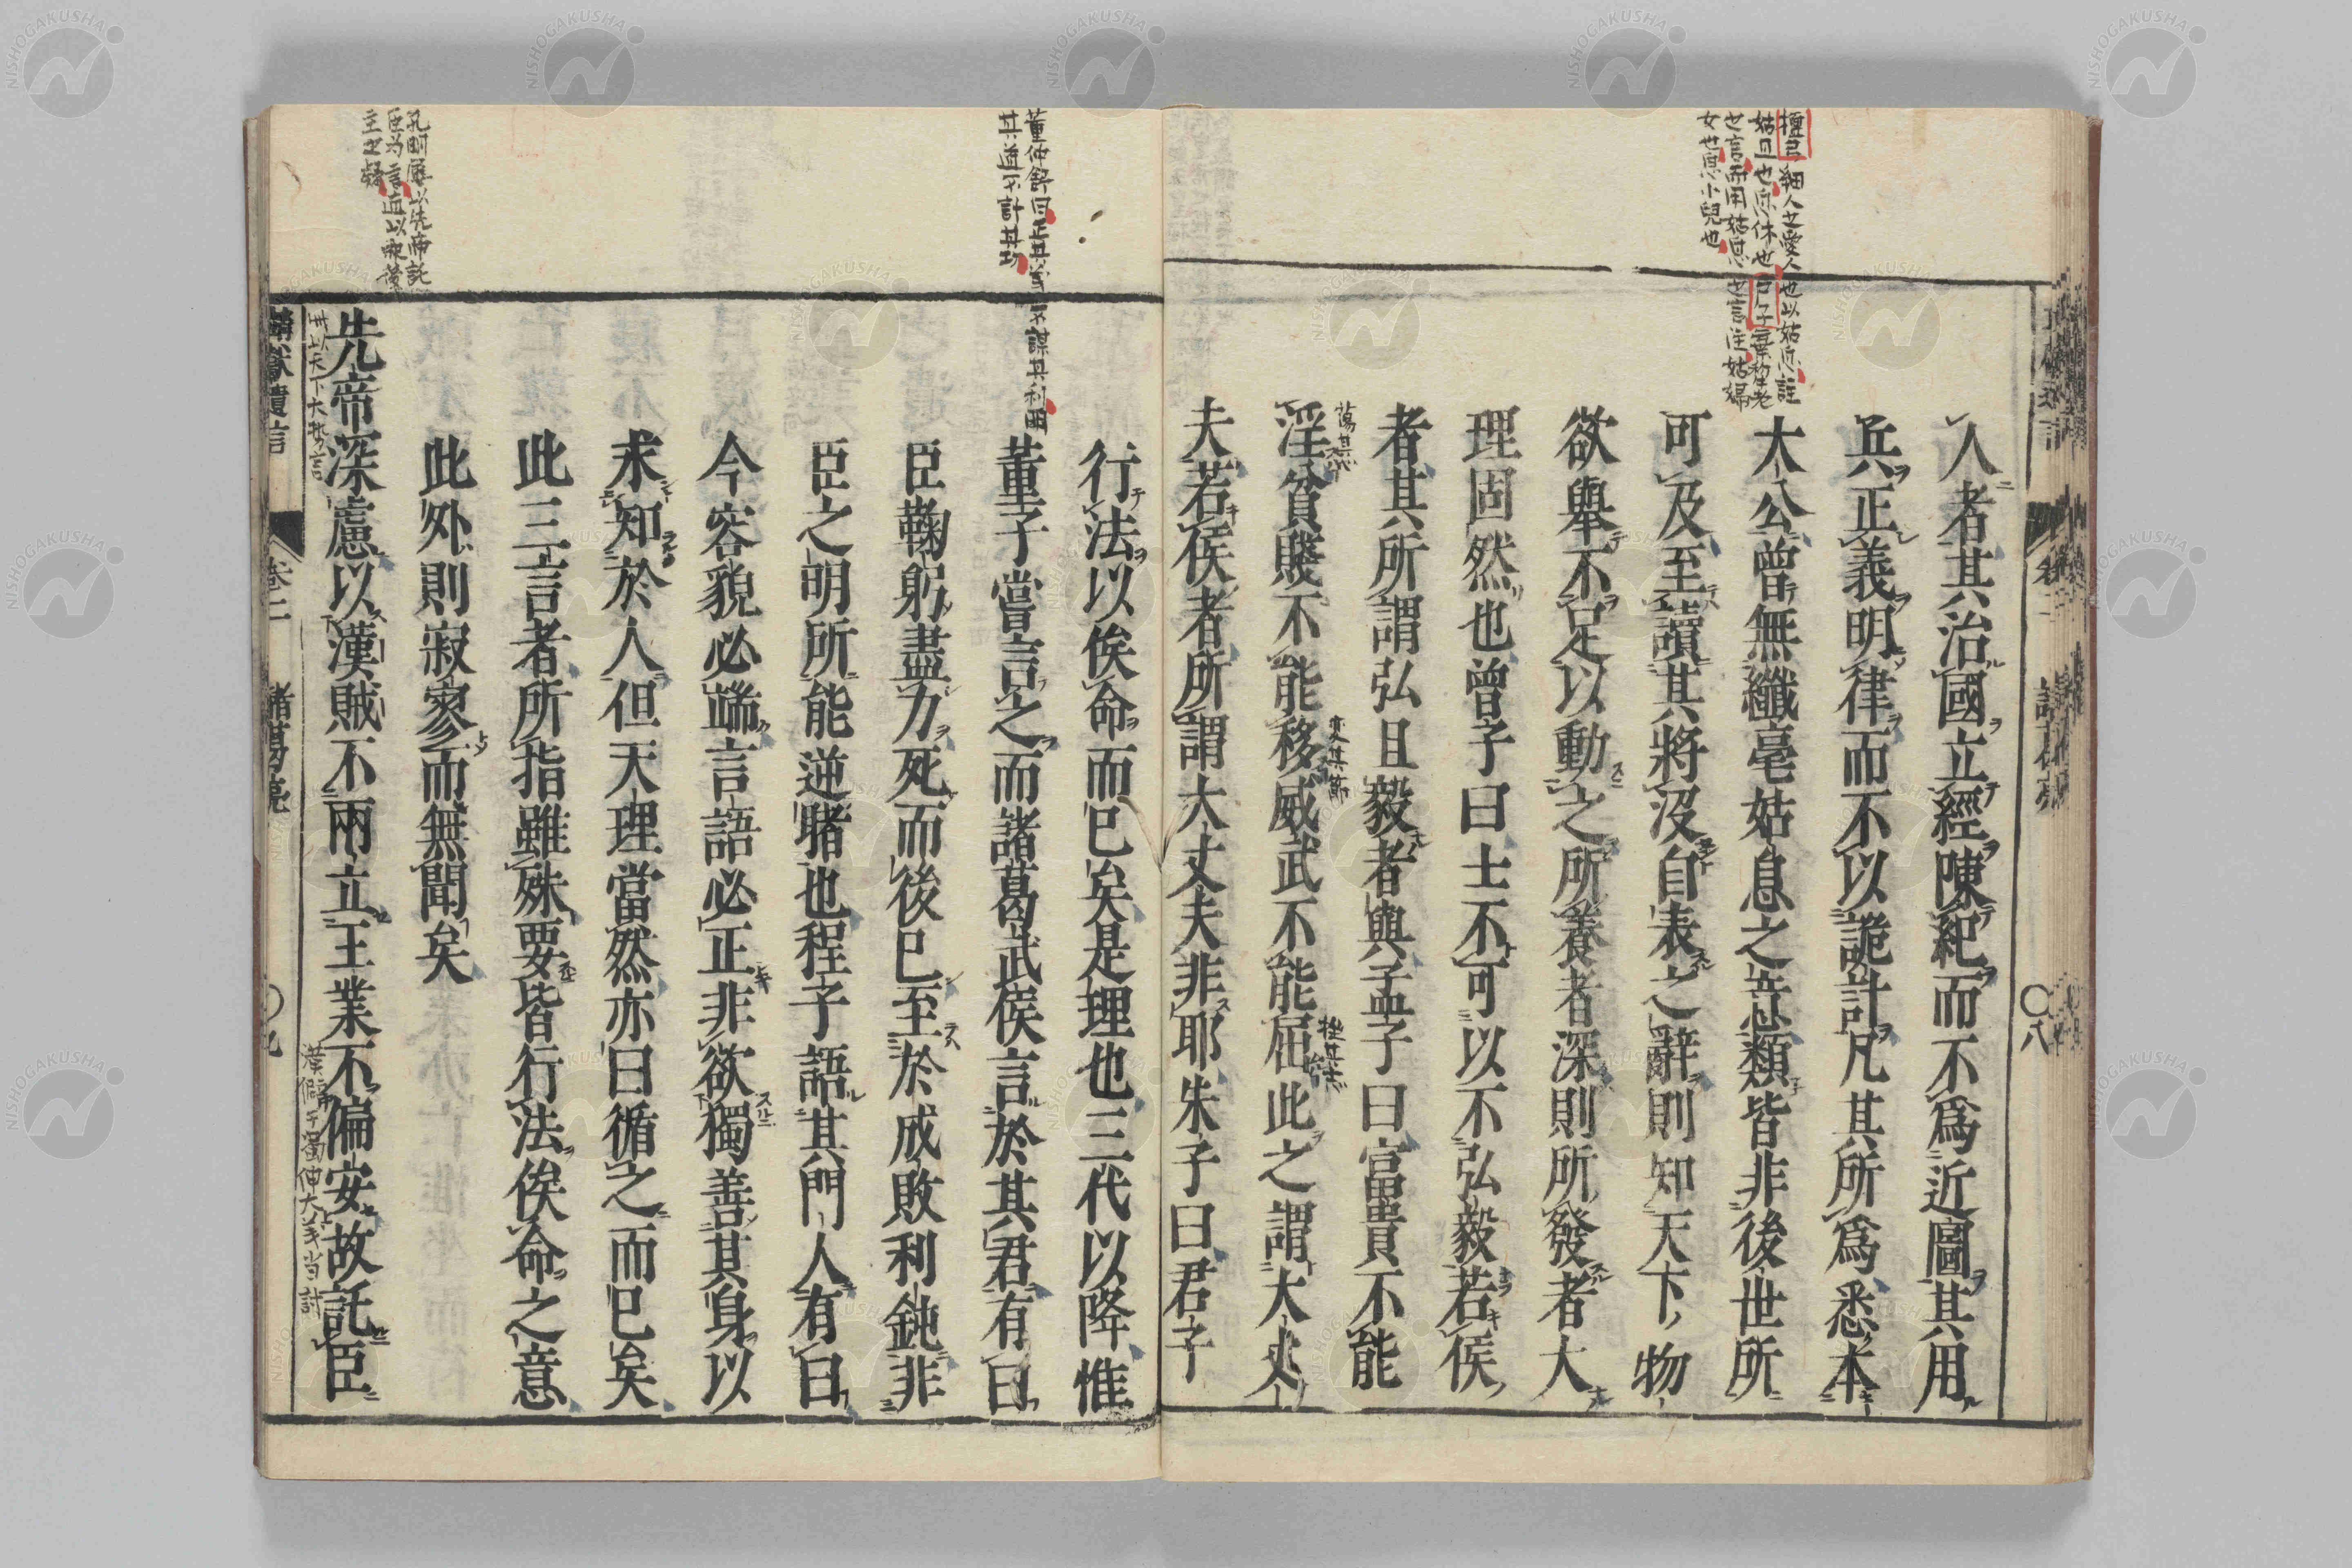 人者其治國立經陳紀而不爲近圖其用
兵正義明律而不以詭計凡其所爲悉本
大公曾無纖毫姑息之意類皆非後世所
可及至讀其將沒自表之辭則知天下物
欲舉不足以動之所養者深則所發者大
理固然也曾子曰士不可以不弘毅若侯
者其所謂弘且毅者與孟子曰富貴不能
淫貧賤不能移威武不能屈此之謂大丈
夫若侯者所謂大丈夫非耶朱子曰君子
行法以俟命而已矣是理也三代以降惟
董子嘗言之而諸葛武侯言於其君有曰
臣鞠躬盡力死而後已至於成敗利鈍非
臣之明所能逆睹也程子語其門人有曰
今容貌必端言語必正非欲獨善其身以
求知於人但天理當然亦曰循之而已矣
此三言者所指雖殊要皆行法俟命之意
此外則寂寥而無聞矣
先帝深慮以漢賊不兩立王業不偏安故託臣
檀弓細人之愛人也以姑息註
姑且也息休也
女也息小兒也
蕩其心
変其節
挫其志
董仲舒曰正其義不謀其利明
其道不計其功
孔明屡以先帝託
主之疑
共以天下大勢言
靖獻遺言
卷二
諸葛亮
〇九
〇八
NISHOGAKUSHA